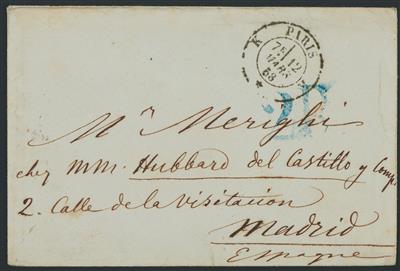 K PARIS
7E 12
MARS
68
Mr Merighi
chez MM. Hubbard del Castillo y Comp.
2. Calle de la Visitacion
Madrid
Espagne